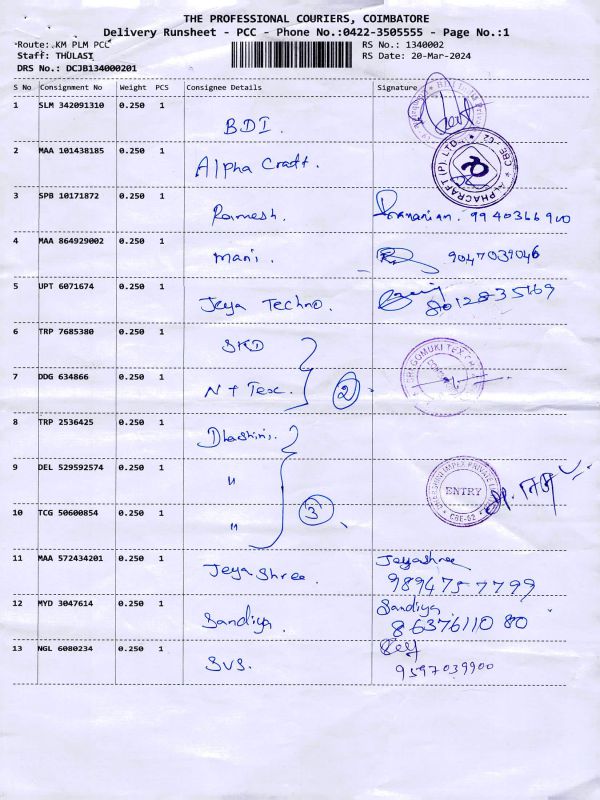 THE PROFESSIONAL COURIERS, COIMBATORE
Delivery Runsheet - PCC - Phone No.:0422-3505555 - Page No.:1
Route: KM PLM PCC
RS No.: 1340002
Staff: THULASI
RS Date: 20-Mar-2024
DRS No.: DCJB134000201
S No Consignment No Weight PCS Consignee Details Signature
1 SLM 342091310 0.250 1 BDI.
2 MAA 101438185 0.250 1 Alpha Craft.
ALPHACRAFT (P). LTD. CBE-02
3 SPB 10171872 0.250 1 Ramesh. 9940366900
4 MAA 864929002 0.250 1 mani. 9047039046
5 UPT 6071674 0.250 1 Jeya Techno. 8012835169
6 TRP 7685380 0.250 1 SKD
7 DDG 634866 0.250 1 N + Tex. 2
8 TRP 2536425 0.250 1 Dhashini.
9 DEL 529592574 0.250 1 "
ENTRY
CBE-02
10 TCG 50600854 0.250 1 " 3
11 MAA 572434201 0.250 1 Jeya Shree. Jeyashree
9894757799
12 MYD 3047614 0.250 1 Sandiya. Sandiya
8637611080
13 NGL 6080234 0.250 1 SVS. Self
9597039900